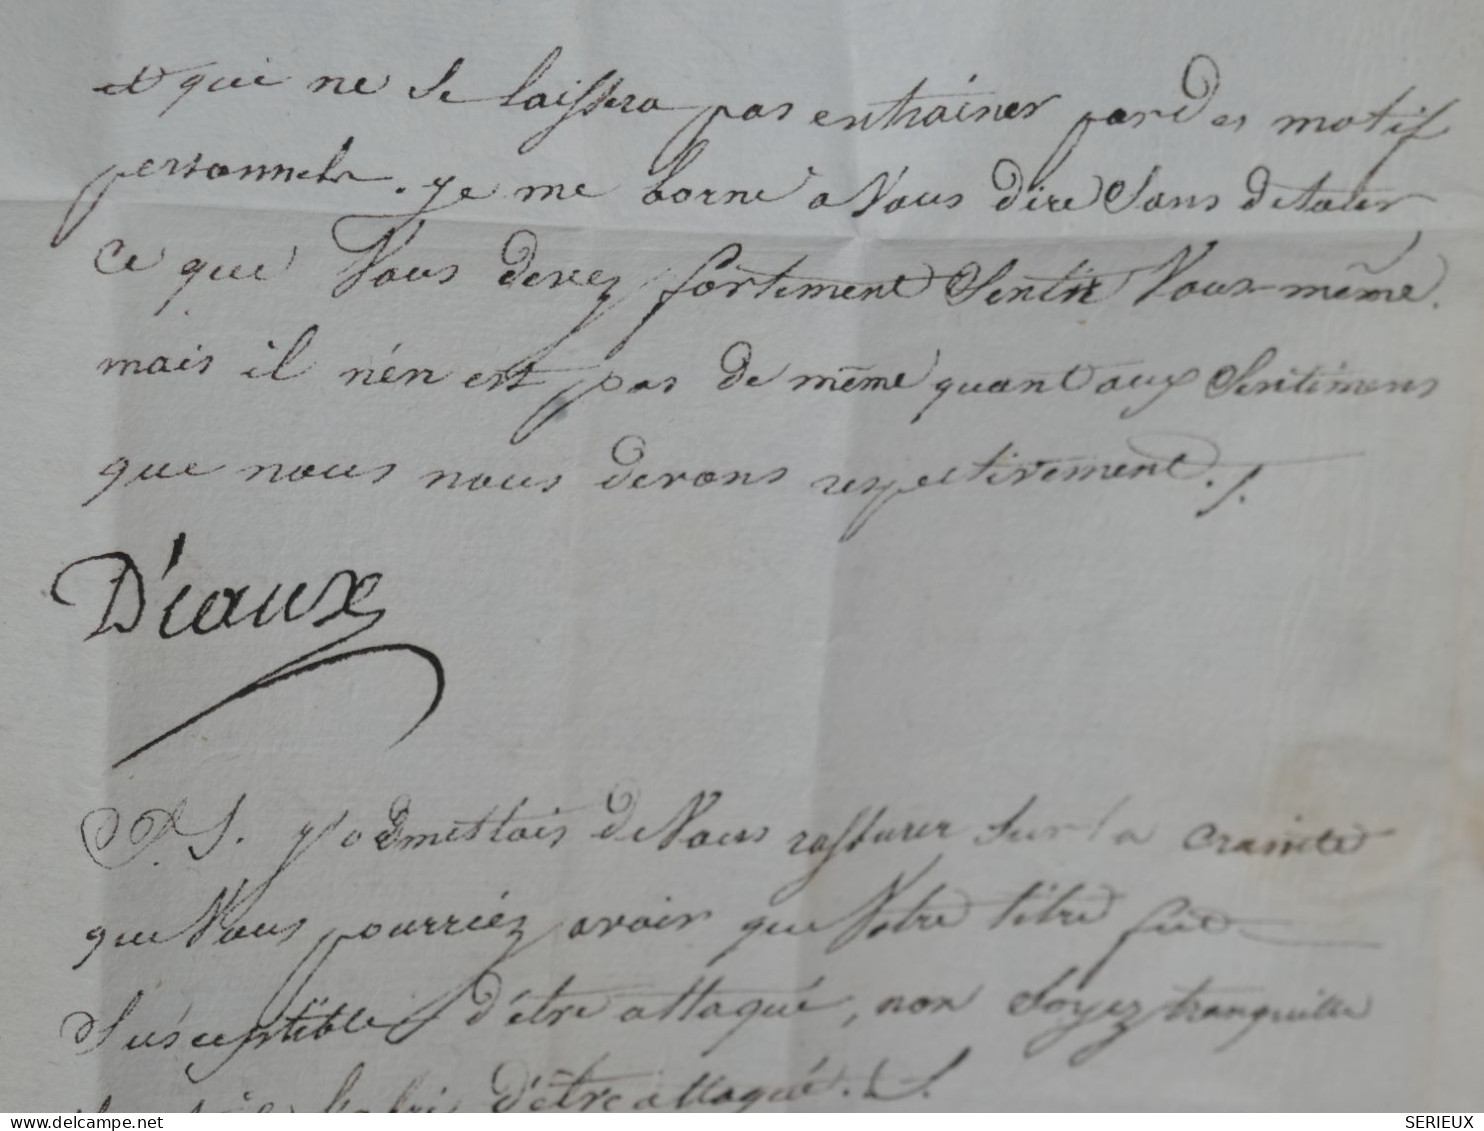 et qui ne se laissera pas entrainer par des motif
personnels. je me borne a Vous dire Sans detour
ce que Vous devez fortement Sentir Vous-même.
mais il n'én est pas de même quant aux Sentimens
que nous nous devons respectivement ./.
D'éaux
P.S. j'admettais de Vous rassurer sur la crainte
que Vous pourriéz avoir que Votre titre fut
Susceptible d'étre attaqué, non Soyez tranquille
il est à l'abri d'étre attaqué. /.
delcampe.net
SERIEUX